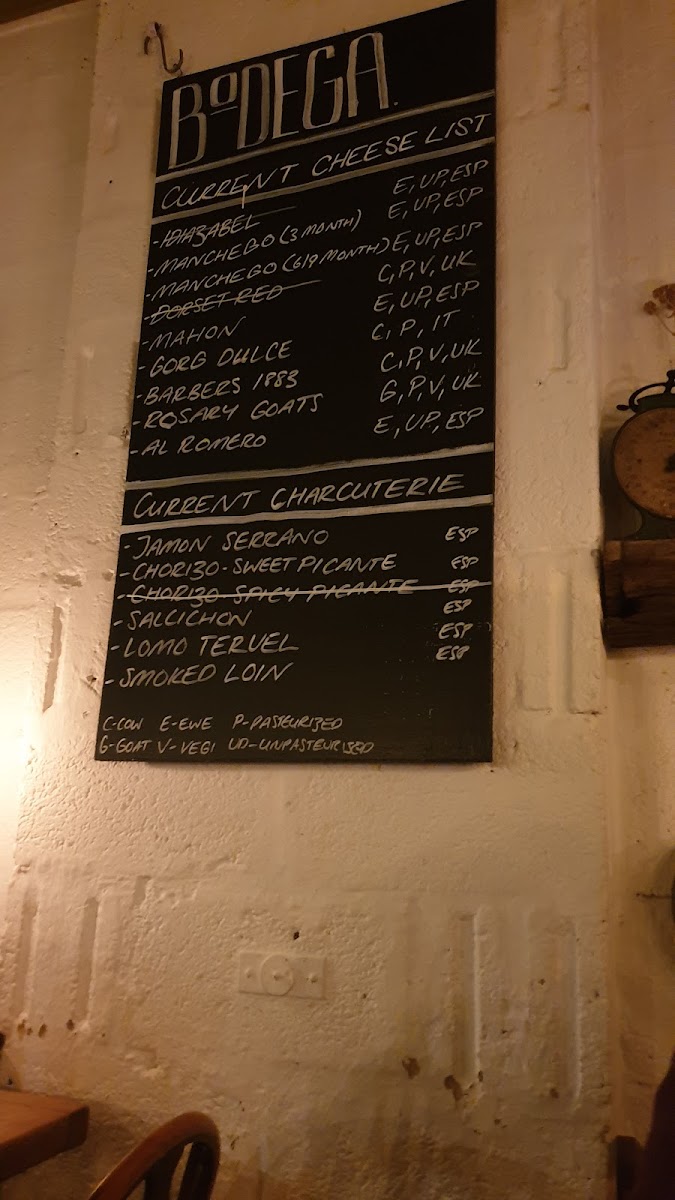 BODEGA.
CURRENT CHEESE LIST
- IDIAZABEL E, UP, ESP
- MANCHEGO (3 MONTH) E, UP, ESP
- MANCHEGO (6/9 MONTH) E, UP, ESP
- DORSET RED C, P, V, UK
- MAHON E, UP, ESP
- GORG DULCE C, P, IT
- BARBERS 1883 C, P, V, UK
- ROSARY GOATS G, P, V, UK
- AL ROMERO E, UP, ESP
CURRENT CHARCUTERIE
- JAMON SERRANO ESP
- CHORIZO - SWEET PICANTE ESP
- CHORIZO SPICY PICANTE ESP
- SALCICHON ESP
- LOMO TERUEL ESP
- SMOKED LOIN ESP
C-COW E-EWE P-PASTEURIZED
G-GOAT V-VEGI UP-UNPASTEURISED